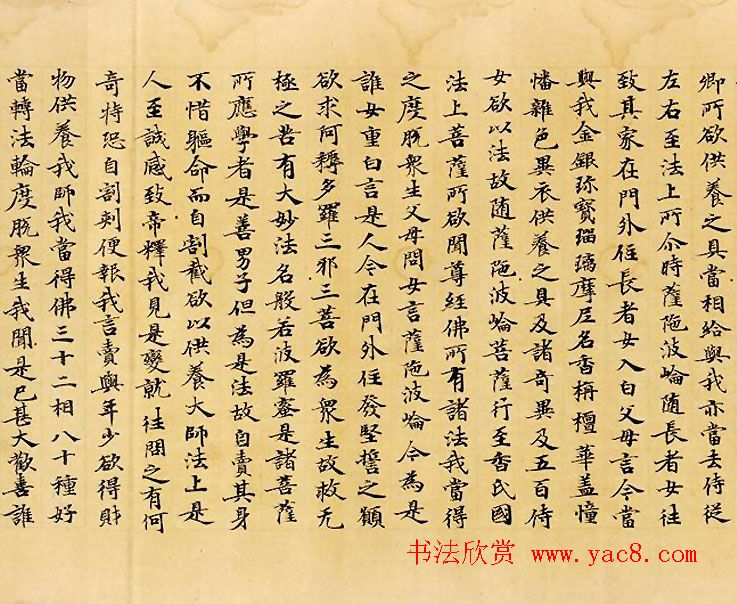 卿所欲供養之具當相給與我亦當去侍從
左右至法上所尒時薩陁波崘随長者女往
致其家在門外住長者女入白父母言令當
與我金銀珎寶瑠璃摩尼名香栴檀華盖幢
幡雜色異衣供養之具及諸奇異及五百侍
女欲以法故随薩陁波崘菩薩行至香氏國
法上菩薩所欲聞尊経佛所有諸法我當得
之度脫衆生父母問女言薩陁波崘今為是
誰女重白言是人今在門外住發堅誓之願
欲求阿耨多羅三邪三菩欲為衆生故救无
極之苦有大妙法名般若波羅蜜是諸菩薩
所應學者是善男子但為是法故自賣其身
不惜軀命而自割截欲以供養大師法上是
人至誠感致帝釋我見是變就往問之有何
奇特恐自割刾便報我言賣與年少欲得財
物供養我師我當得佛三十二相八十種好
當轉法輪度脫衆生我聞是已甚大歡喜誰
书法欣赏 www.yac8.com